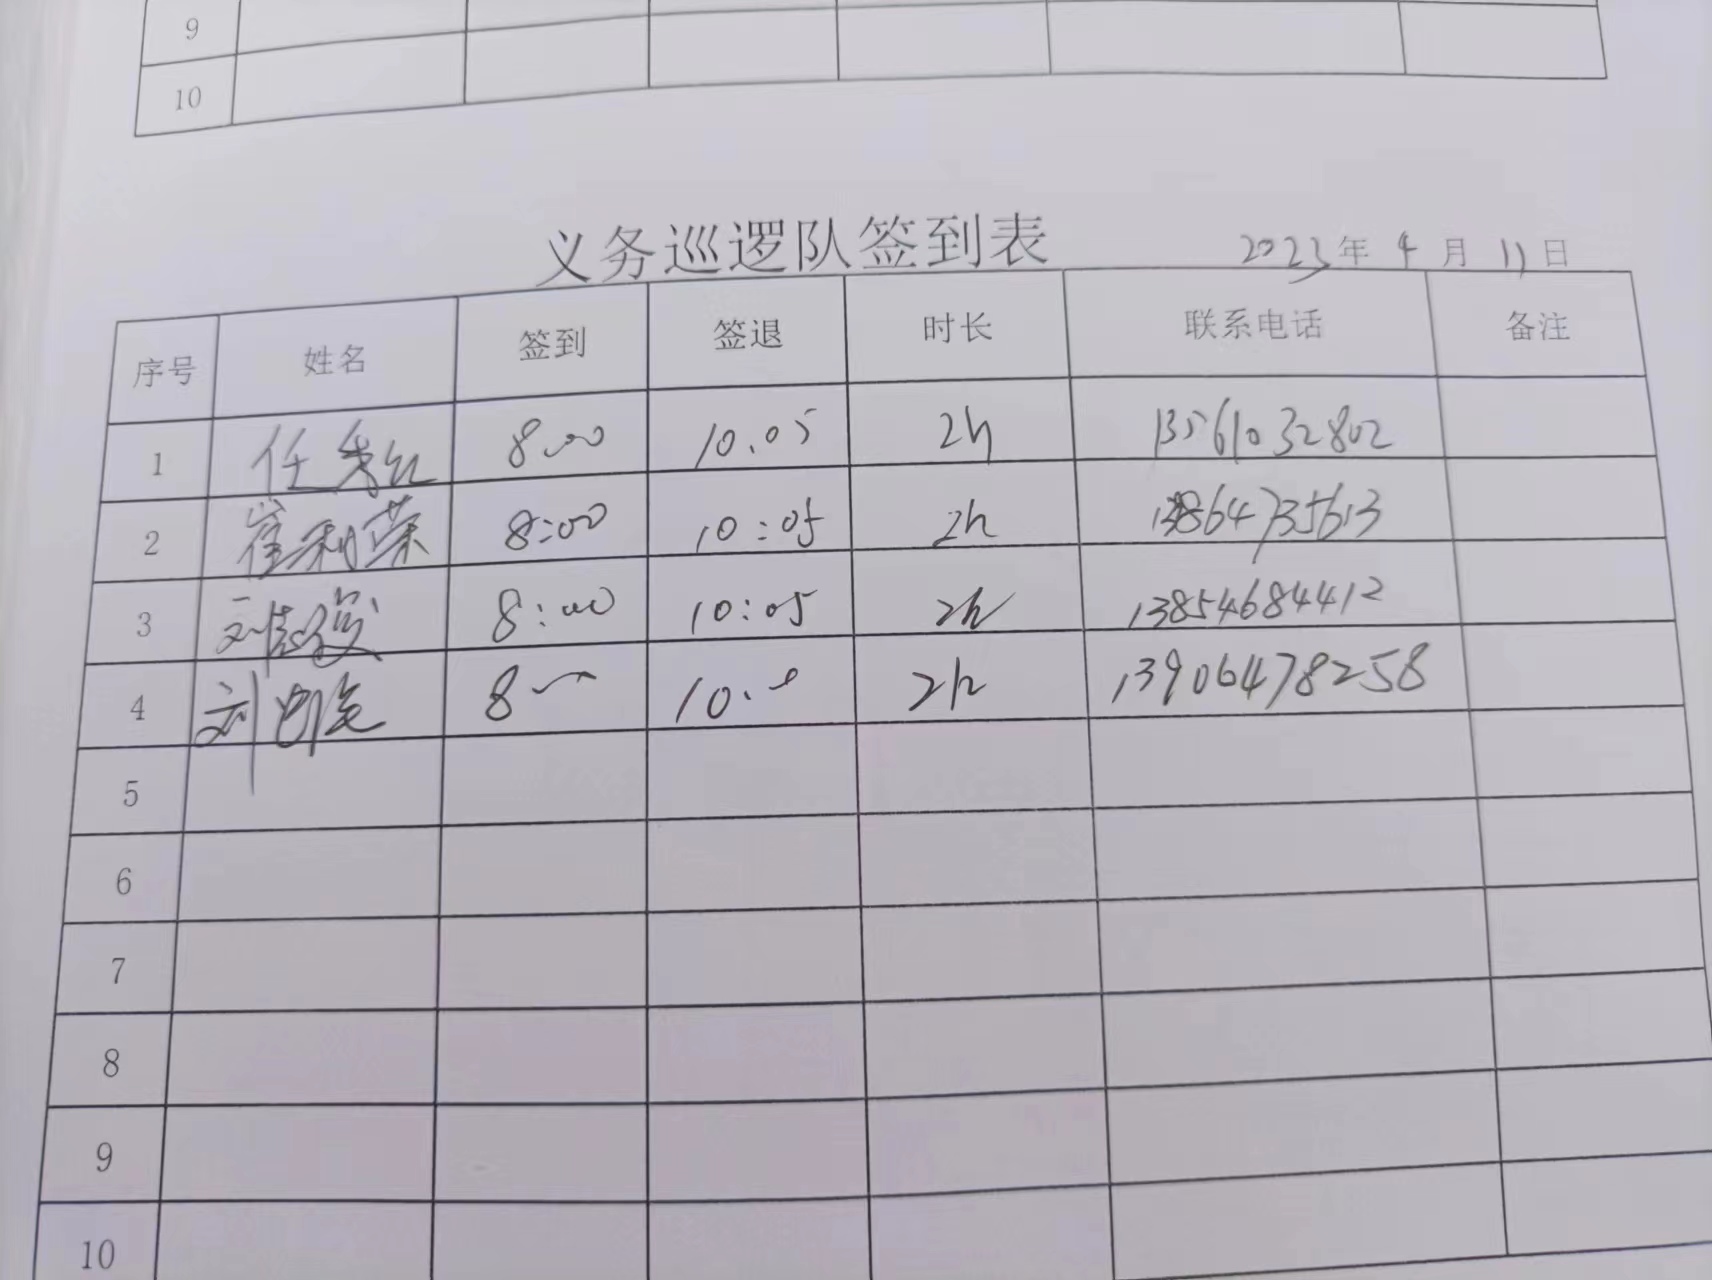 9
10
义务巡逻队签到表 2023年4月11日
序号 姓名 签到 签退 时长 联系电话 备注
1 任 8:00 10.05 2h 13561032802
2 崔利荣 8:00 10:05 2h 13864735613
3 刘 8:00 10:05 2h 13854684412
4 刘 8 10 2h 13906478258
5
6
7
8
9
10